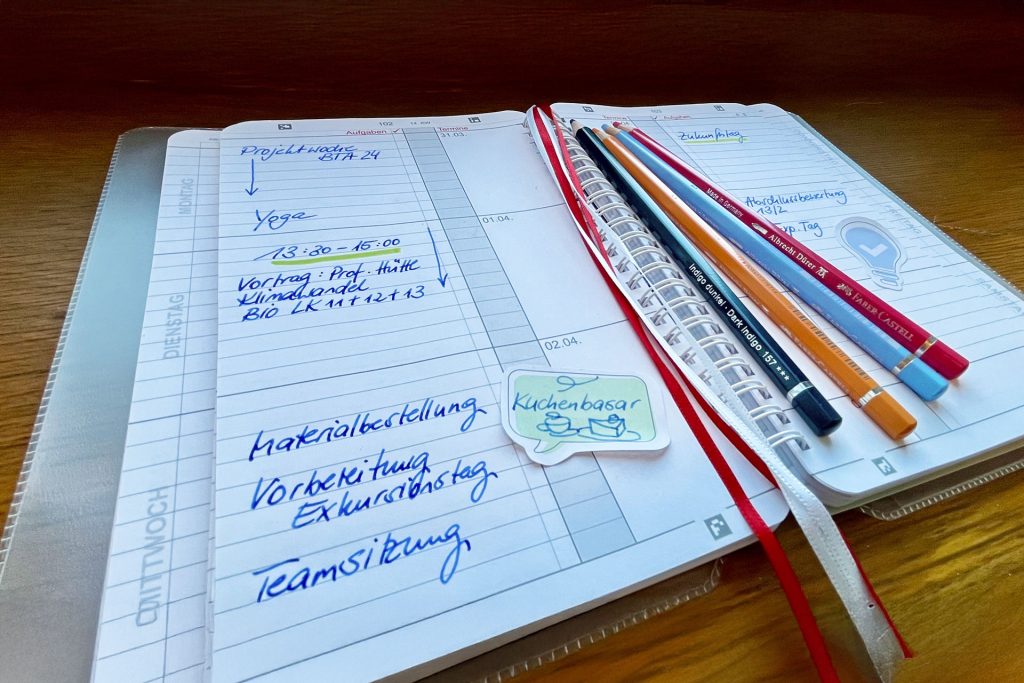 MONTAG
DIENSTAG
MITTWOCH
Aufgaben ✓
102
14. KW
Termine
31.03.
Projektwoche
BTA 24
Yoga
01.04.
13:30 – 15:00
Vortrag: Prof. Hütte
Klimawandel
Bio LK 11 + 12 + 13
02.04.
Materialbestellung
Vorbereitung
Exkursionstag
Teamsitzung
Kuchenbasar
Termine
103
✓ Aufgaben
Zukunftstag
Abschlussbewertung
13/2
Tag
Made in Germany
Albrecht Dürer
FABER-CASTELL
Indigo dunkel · Dark Indigo 157 ***